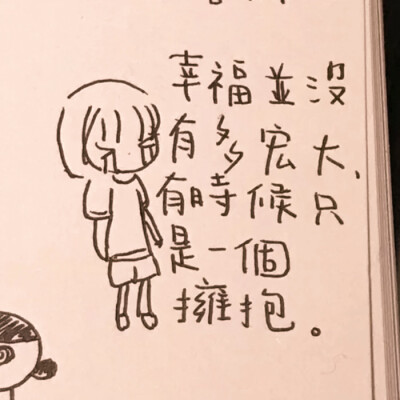 幸福並沒
有多宏大、
有時候只
是一個
擁抱。